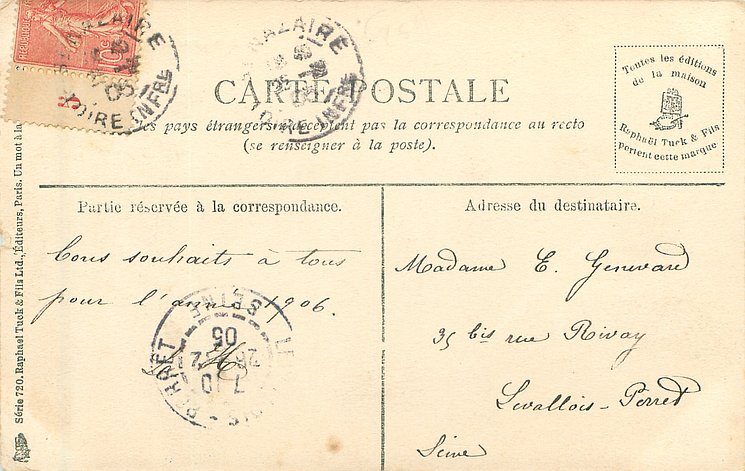 RÉPUBLIQUE FRANÇAISE
10c
5
ST NAZAIRE
LOIRE INFRE
ST NAZAIRE
LOIRE INFRE
CARTE POSTALE
les pays étrangers n'acceptent pas la correspondance au recto
(se renseigner à la poste).
Toutes les éditions
de la maison
Raphaël Tuck & Fils
portent cette marque
Partie réservée à la correspondance.
Bons souhaits à tous
pour l'année 1906.
LEVALLOIS-PERRET
SEINE
7 10
26 12
05
Adresse du destinataire.
Madame E. Genevard
35 bis rue Rivay
Levallois-Perret
Seine
Série 720. Raphael Tuck & Fils Ltd., Éditeurs, Paris. Un mot à la